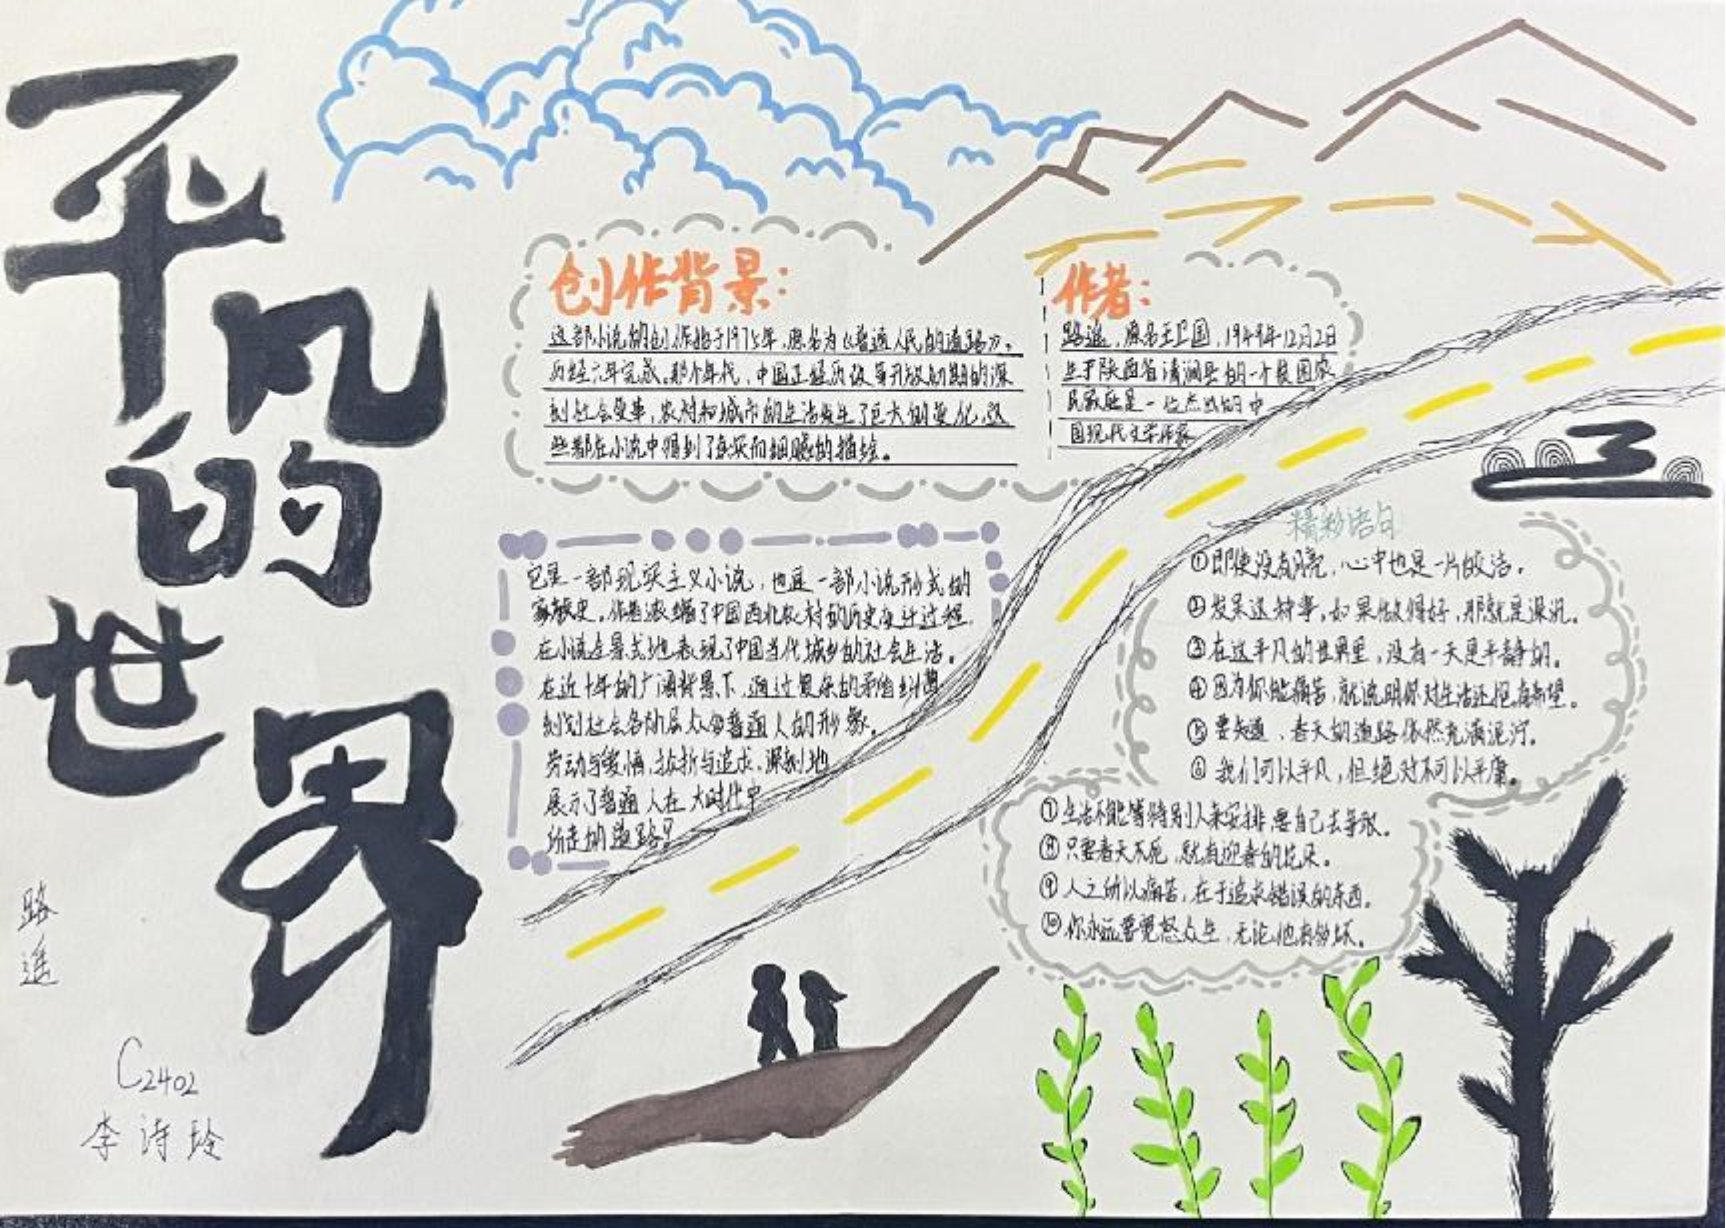 平凡的世界
路遥
C2402
李诗玲
创作背景：
这部小说的创作始于1975年，原名为《普通人民的道路》。
历经六年完成。那个年代，中国正经历改革开放初期的深
刻社会变革，农村和城市的生活发生了巨大的变化，这
些都在小说中得到了真实而细腻的描绘。
作者：
路遥，原名王卫国，1949年12月2日
生于陕西省清涧县的一个贫困农
民家庭是一位杰出的中
国现代文学作家
它是一部现实主义小说，也是一部小说形式的
家族史。作者浓缩了中国西北农村的历史变迁过程，
在小说全景式地表现了中国当代城乡的社会生活。
在近十年的广阔背景下，通过复杂的矛盾纠葛
刻划社会各阶层众多普通人的形象。
劳动与爱情，挫折与追求，深刻地
展示了普通人在大时代中
所走的道路
精彩语句
①即使没有月亮，心中也是一片皎洁。
②发呆这种事，如果做得好，那就是深沉。
③在这平凡的世界里，没有一天是平静的。
④因为你能痛苦，就说明你对生活还抱有希望。
⑤要知道，春天的道路依然充满泥泞。
⑥我们可以平凡，但绝对不可以平庸。
⑦生活不能等待别人来安排，要自己去争取。
⑧只要春天不死，就有迎春的花朵。
⑨人之所以痛苦，在于追求错误的东西。
⑩你永远要宽恕众生，无论他有多坏。